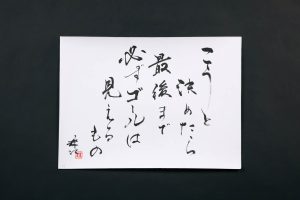 こうと
決めたら
最後まで
必ずゴールは
見える
もの